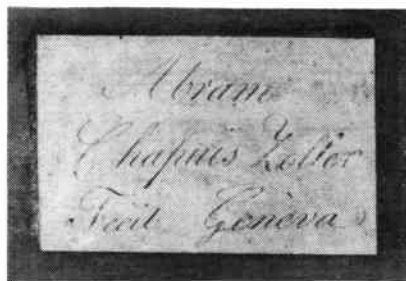 Abram
Chapuis Zoller
Fecit Geneva